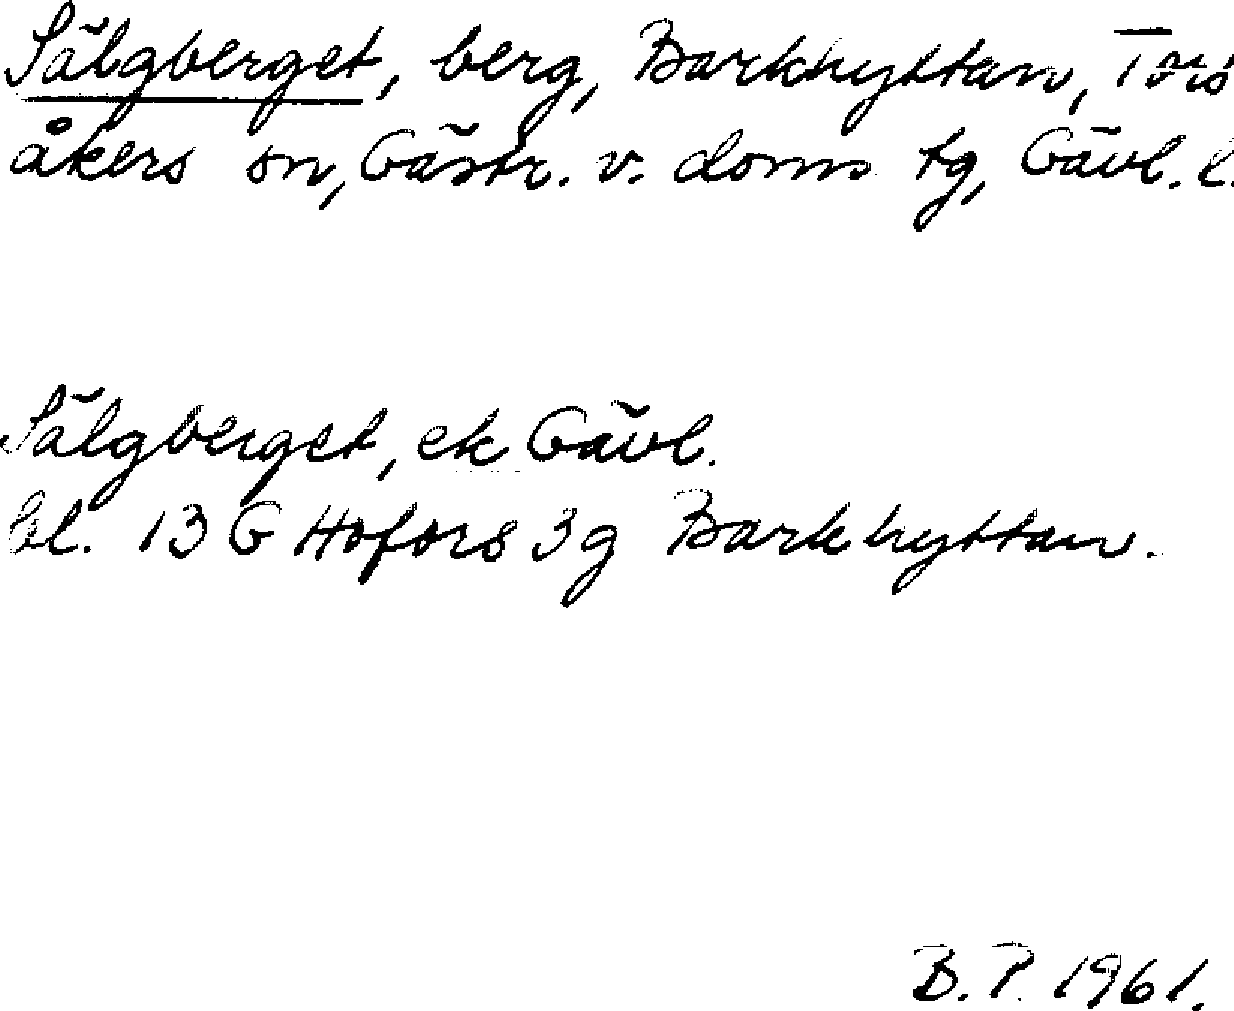 Sälgberget, berg, Barkhyttan, Tors
åkers sn, Gästr. v. doms tg, Gävl. l.
Sälgberget, ek Gävl.
bl. 13 G Hofors 3g Barkhyttan.
B. P. 1961.